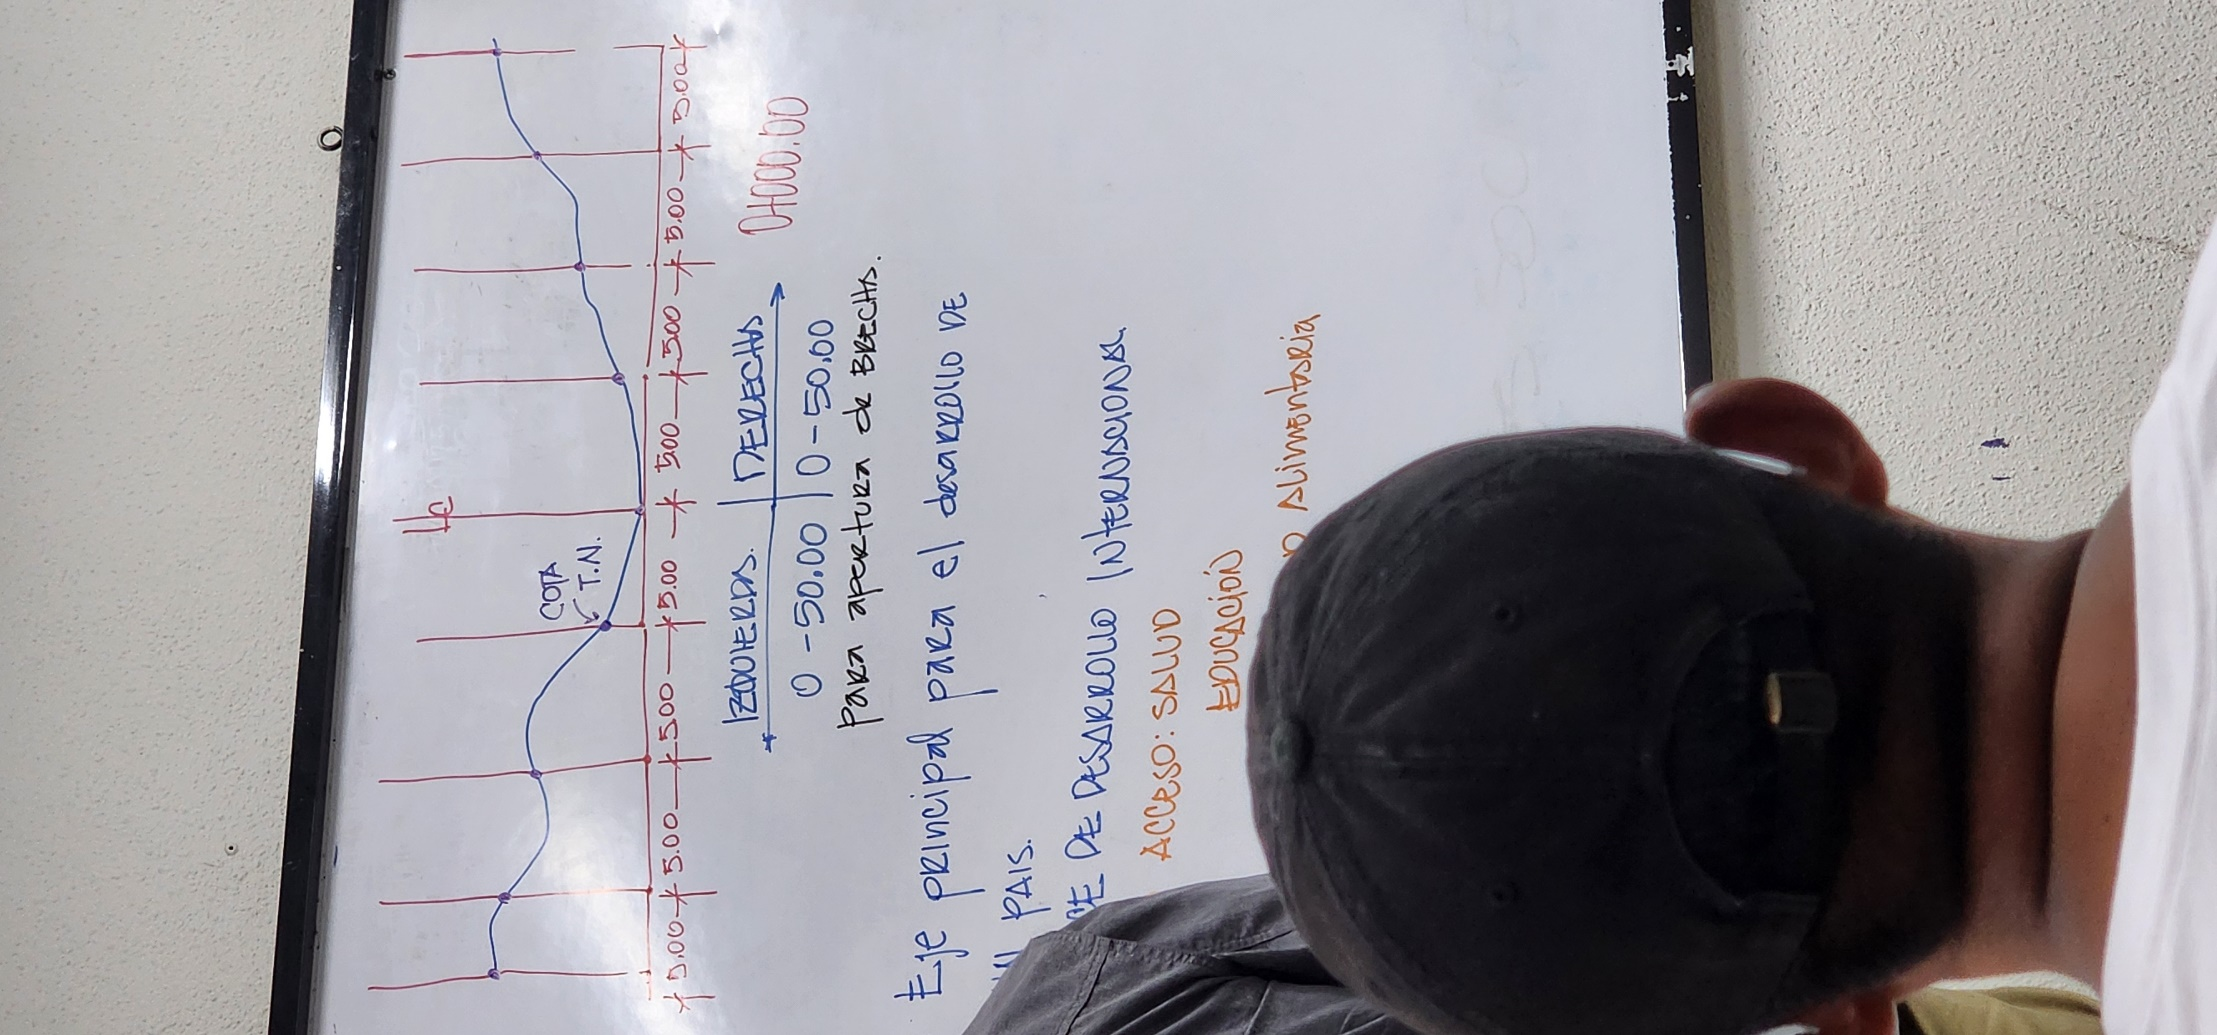 ℄
COTA
T.N.
5.00 5.00 5.00 5.00 5.00 5.00 5.00 5.00
IZQUIERDA. DERECHA
0+000.00
0 - 50.00 0 - 50.00
para apertura de BRECHA.
Eje principal para el desarrollo DE
PAIS.
DE DESARROLLO INTERNACIONAL
ACCESO: SALUD
EDUCACIÓN
Alimentaria